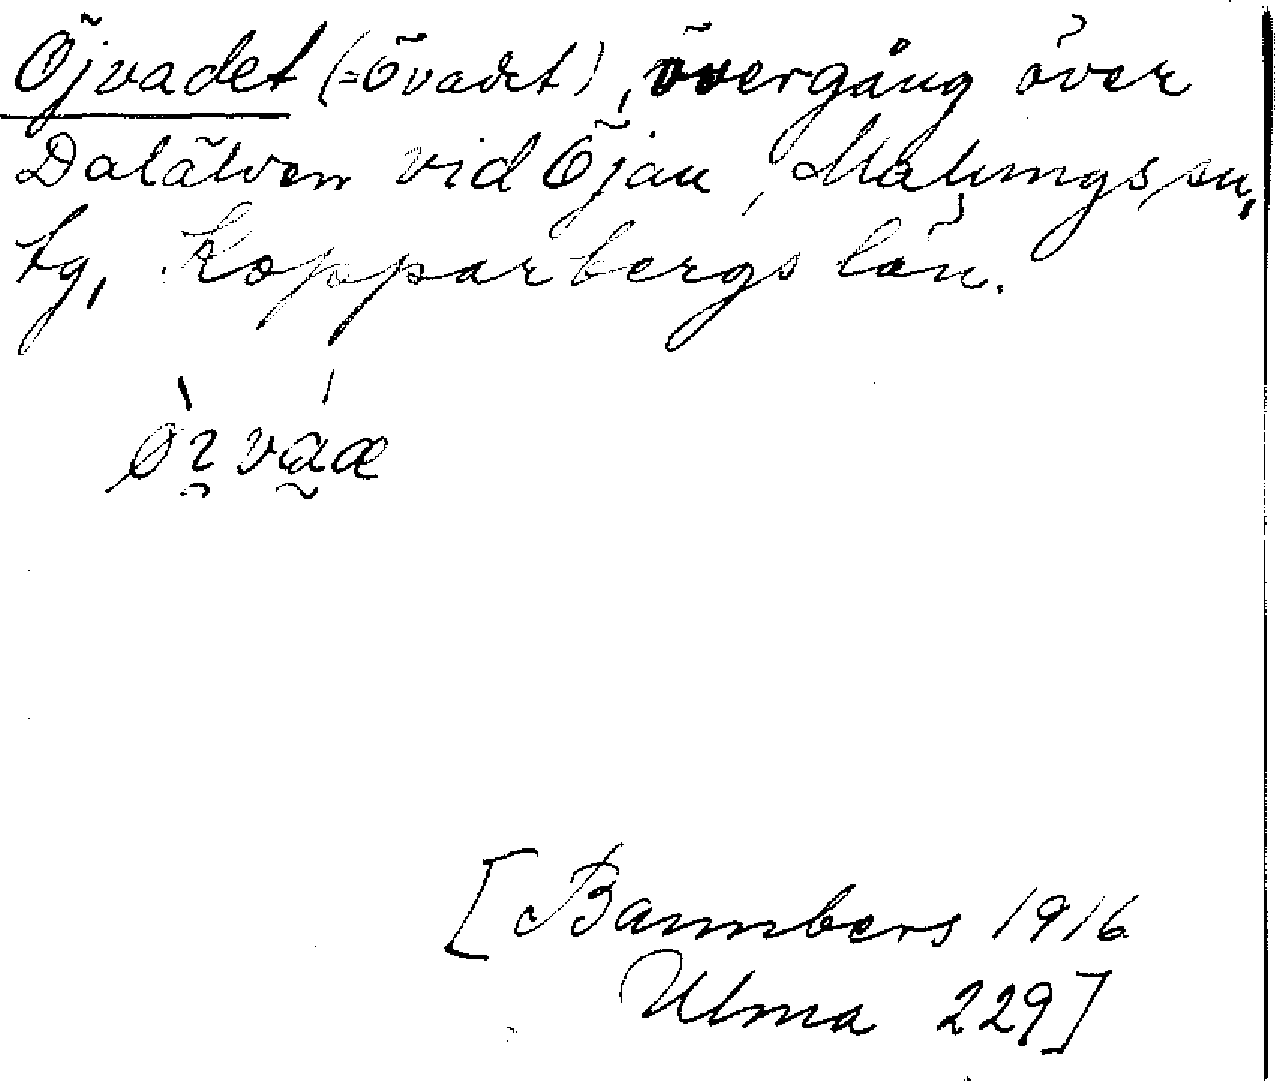 Öjvadet (=Övadet), övergång över
Dalälven vid Öjan, Malungs sn,
tg, Kopparbergs län.
[Bannbers 1916
Ulma 229]